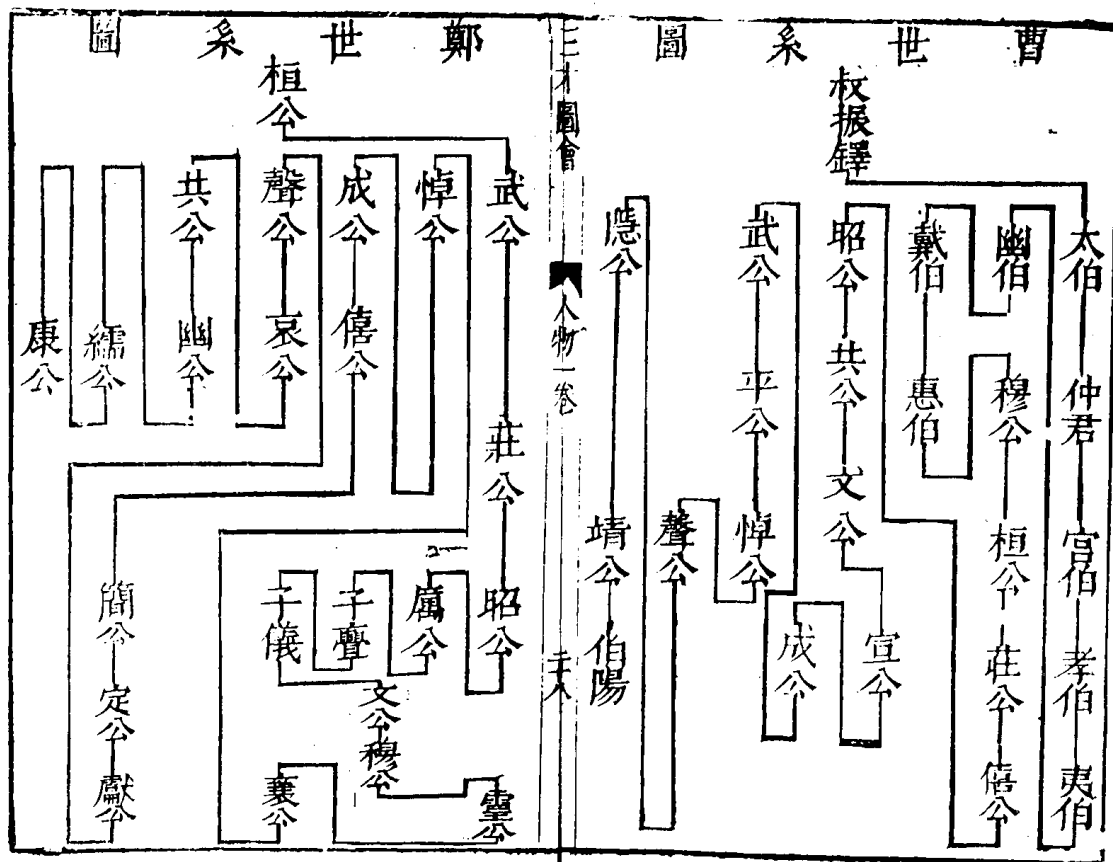 曹世系圖
叔振鐸
太伯
仲君
宫伯
孝伯
夷伯
幽伯
穆公
桓公
莊公
僖公
戴伯
惠伯
昭公
共公
文公
宣公
成公
武公
平公
悼公
聲公
隱公
靖公
伯陽
三才圖會
人物一卷
三十八
鄭世系圖
桓公
武公
莊公
昭公
厲公
子亹
子儀
文公
穆公
靈公
襄公
悼公
成公
僖公
簡公
定公
獻公
聲公
哀公
共公
幽公
繻公
康公